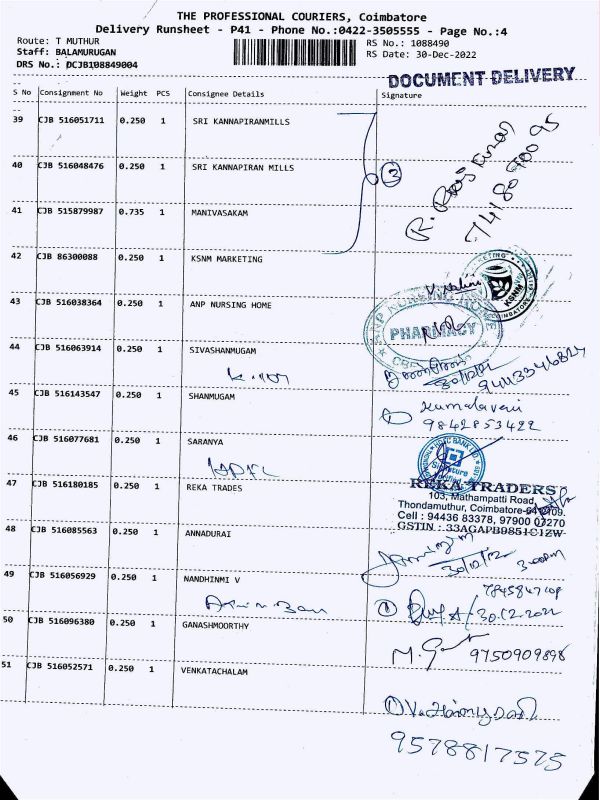 THE PROFESSIONAL COURIERS, Coimbatore
Delivery Runsheet - P41 - Phone No.:0422-3505555 - Page No.:4
Route: T MUTHUR
RS No.: 1088490
Staff: BALAMURUGAN
RS Date: 30-Dec-2022
DRS No.: DCJB108849004
DOCUMENT DELIVERY
S No Consignment No Weight PCS Consignee Details Signature
39 CJB 516051711 0.250 1 SRI KANNAPIRANMILLS
40 CJB 516048476 0.250 1 SRI KANNAPIRAN MILLS
3
74180 700 95
41 CJB 515879987 0.735 1 MANIVASAKAM
42 CJB 86300088 0.250 1 KSNM MARKETING
KSNM
43 CJB 516038364 0.250 1 ANP NURSING HOME
ANP NURSING HOME
PHARMACY
44 CJB 516063914 0.250 1 SIVASHANMUGAM
30/12/22
45 CJB 516143547 0.250 1 SHANMUGAM
9842853422
46 CJB 516077681 0.250 1 SARANYA
47 CJB 516180185 0.250 1 REKA TRADES
REKA TRADERS
103, Mathampatti Road,
Thondamuthur, Coimbatore-641109.
Cell : 94436 83378, 97900 07270
GSTIN : 33AGAPB9851C1ZW
48 CJB 516085563 0.250 1 ANNADURAI
30/12/22
3.00pm
49 CJB 516056929 0.250 1 NANDHINMI V
30.12.2022
50 CJB 516096380 0.250 1 GANASHMOORTHY
9750909898
51 CJB 516052571 0.250 1 VENKATACHALAM
9578817575